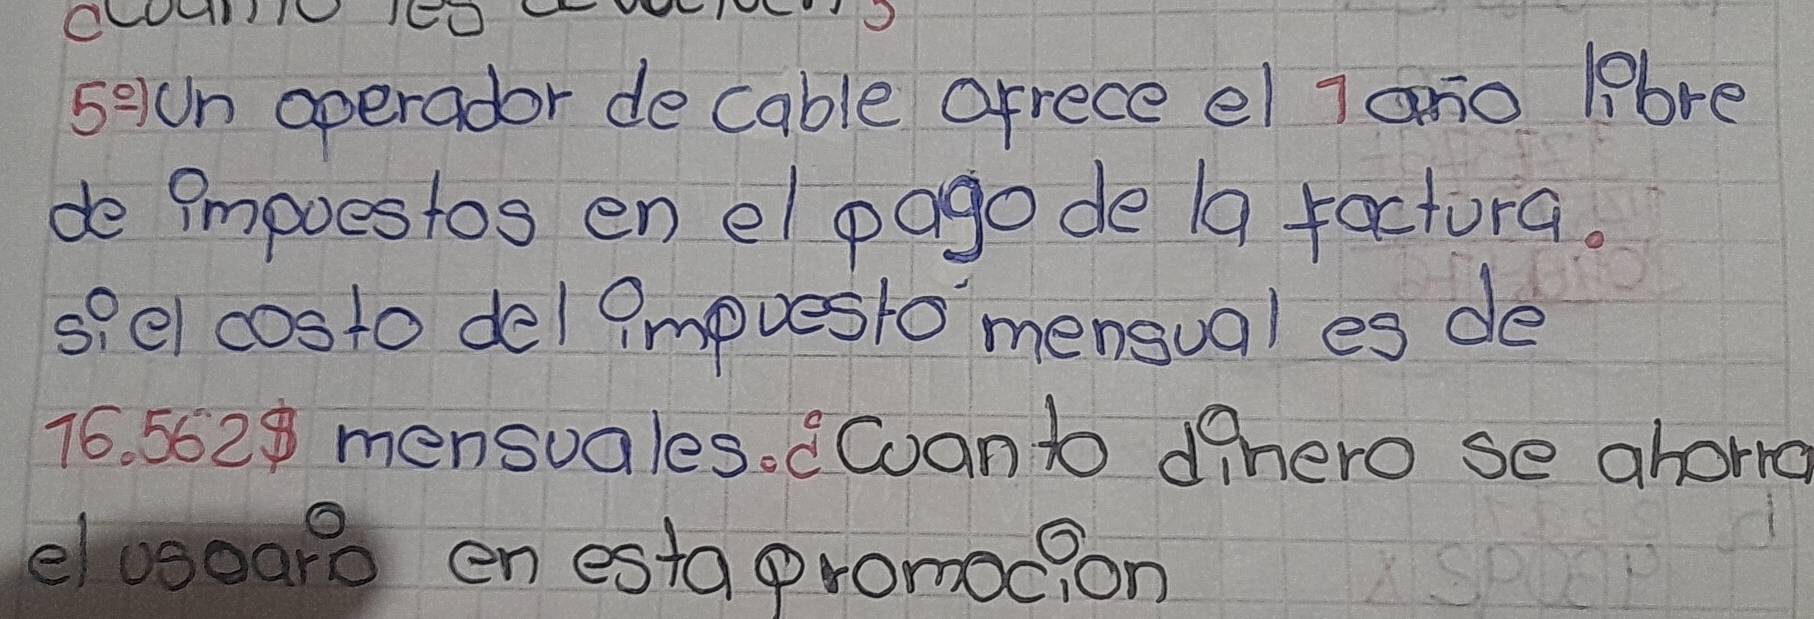 5º) Un operador de cable ofrece el 1 año libre
de impuestos en el pago de la factura.
si el costo del impuesto mensual es de
16.562$ mensuales. ¿Cuanto dinero se ahorra
el usuario en esta promocion